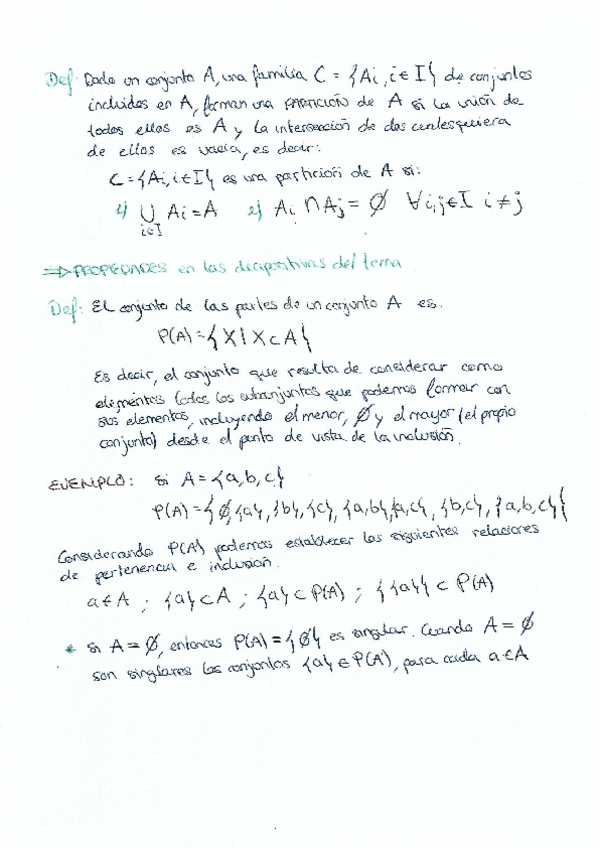 Def: Dado un conjunto A, una familia C = {Ai, i∈I} de conjuntos
incluidos en A, forman una PARTICIÓN de A si la unión de
todos ellos es A y la intersección de dos cualesquiera
de ellos es vacía, es decir:
C = {Ai, i∈I} es una partición de A si:
1) ⋃ Ai = A 2) Ai ∩ Aj = Ø ∀i,j∈I i≠j
i∈I
⇒ PROPIEDADES en las diapositivas del tema
Def: El conjunto de las partes de un conjunto A es.
P(A) = {X | X ⊂ A}
Es decir, el conjunto que resulta de considerar como
elementos todos los subconjuntos que podemos formar con
sus elementos, incluyendo el menor, Ø y el mayor (el propio
conjunto) desde el punto de vista de la inclusión.
EJEMPLO: si A = {a,b,c}
P(A) = {Ø, {a}, {b}, {c}, {a,b}, {a,c}, {b,c}, {a,b,c}}
Considerando P(A) podemos establecer las siguientes relaciones
de pertenencia e inclusión.
a∈A ; {a}⊂A ; {a}⊂P(A) ; {{a}} ⊂ P(A)
* si A = Ø, entonces P(A) = {Ø} es singular. Cuando A = Ø
son singulares los conjuntos {a} ∈ P(A), para cada a∈A